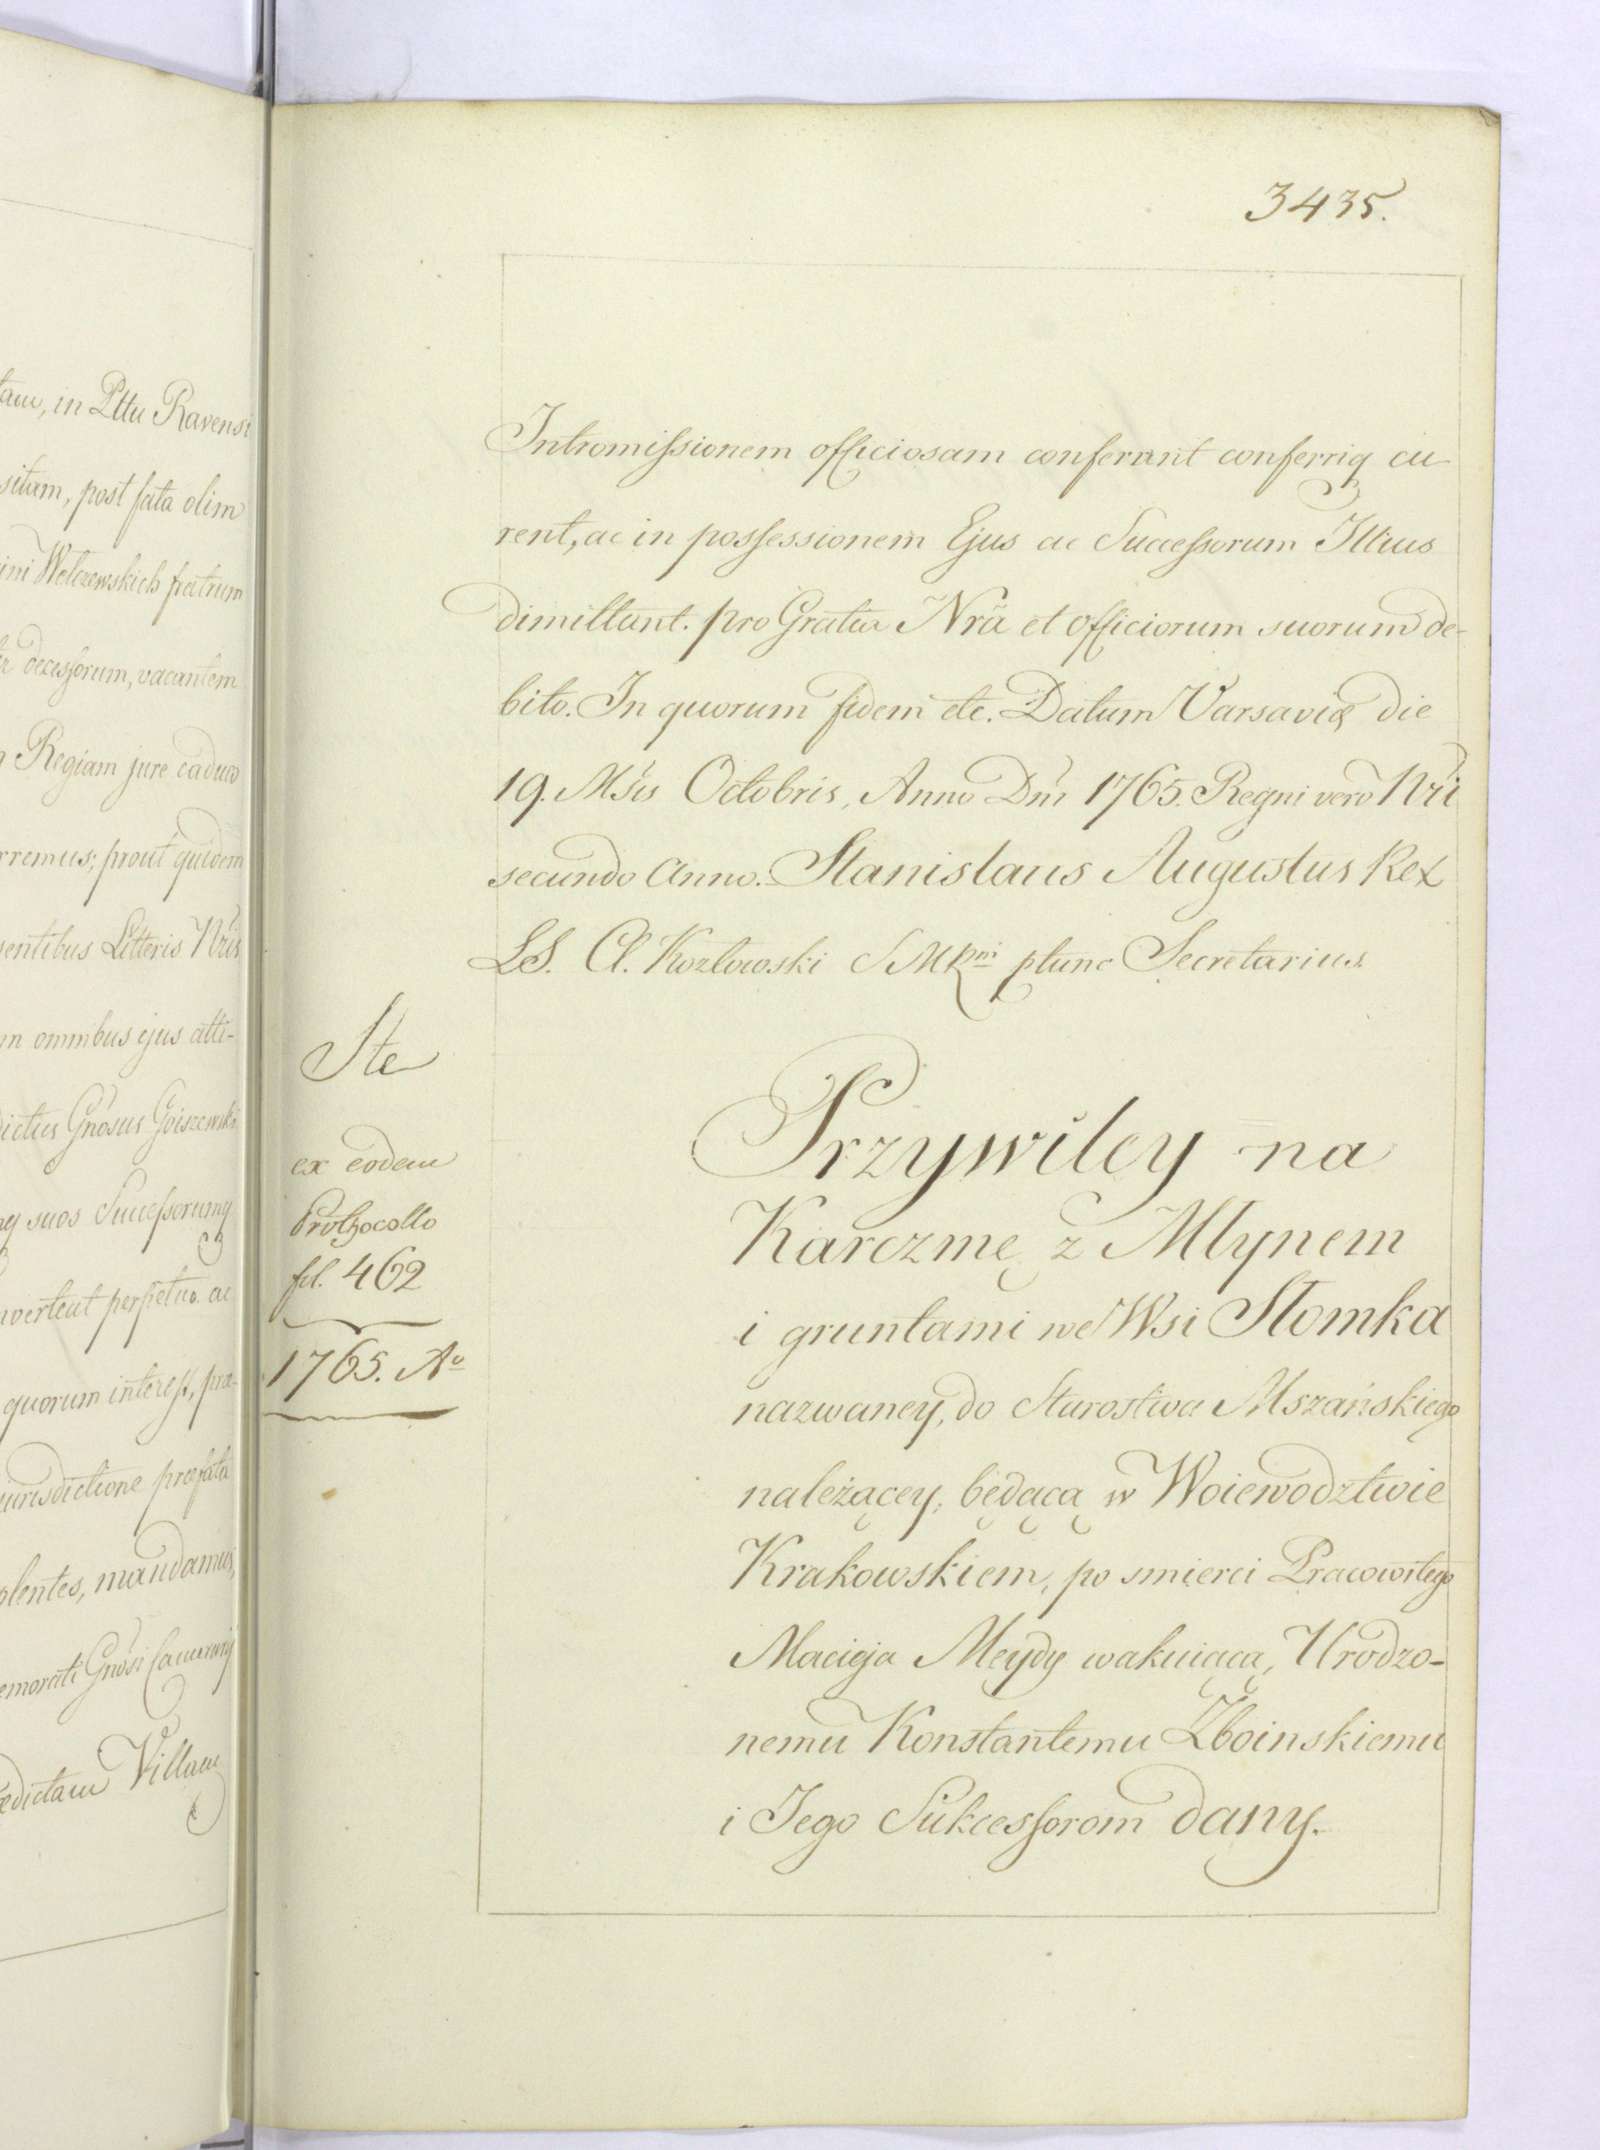 tam, in Pttu Ravensi
sitam, post fata olim
Wolczewskich fratrum
decessorum, vacantem
Regiam jure caduco
rremus; prout quidem
sentibus Litteris Nris
m omnibus ejus atti-
dictus Gnosus Goiszewski
suos Successorumq
vertent perpetuo. ac
quorum interest, præ-
jurisdictione præfata
plentes, mandamus,
emorati Gnosi
ædictam Villam
3435.
Intromissionem officiosam conferant conferriq cu-
rent, ac in possessionem Ejus ac Successorum Illius
dimittant. pro Gratia Nrã et officiorum suorum de-
bito. In quorum fidem etc. Datum Varsaviæ die
19. Msis Octobris, Anno Dni 1765. Regni vero Nri
secundo Anno. Stanislaus Augustus Rex
LS. Cl. Kozlowski SMRmi ptunc Secretarius.
Ste
ex eodem
Prothocollo
fol. 462
1765. Ao
Przywiley na
Karczmę z Młynem
i gruntami we Wsi Słomka
nazwaney, do Starostwa Mszańskiego
należącey, będącą w Woiewodztwie
Krakowskiem, po smierci Pracowitego
Macieja Meydy wakuiącą, Urodzo-
nemu Konstantemu Zboinskiemu
i Jego Sukcessorom dany.